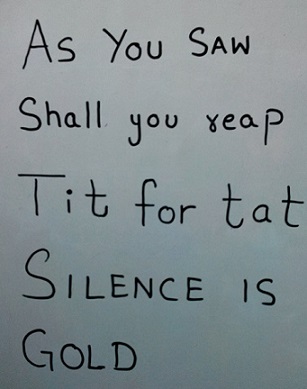 As You SAW
Shall you reap
Tit for tat
SILENCE IS
GOLD